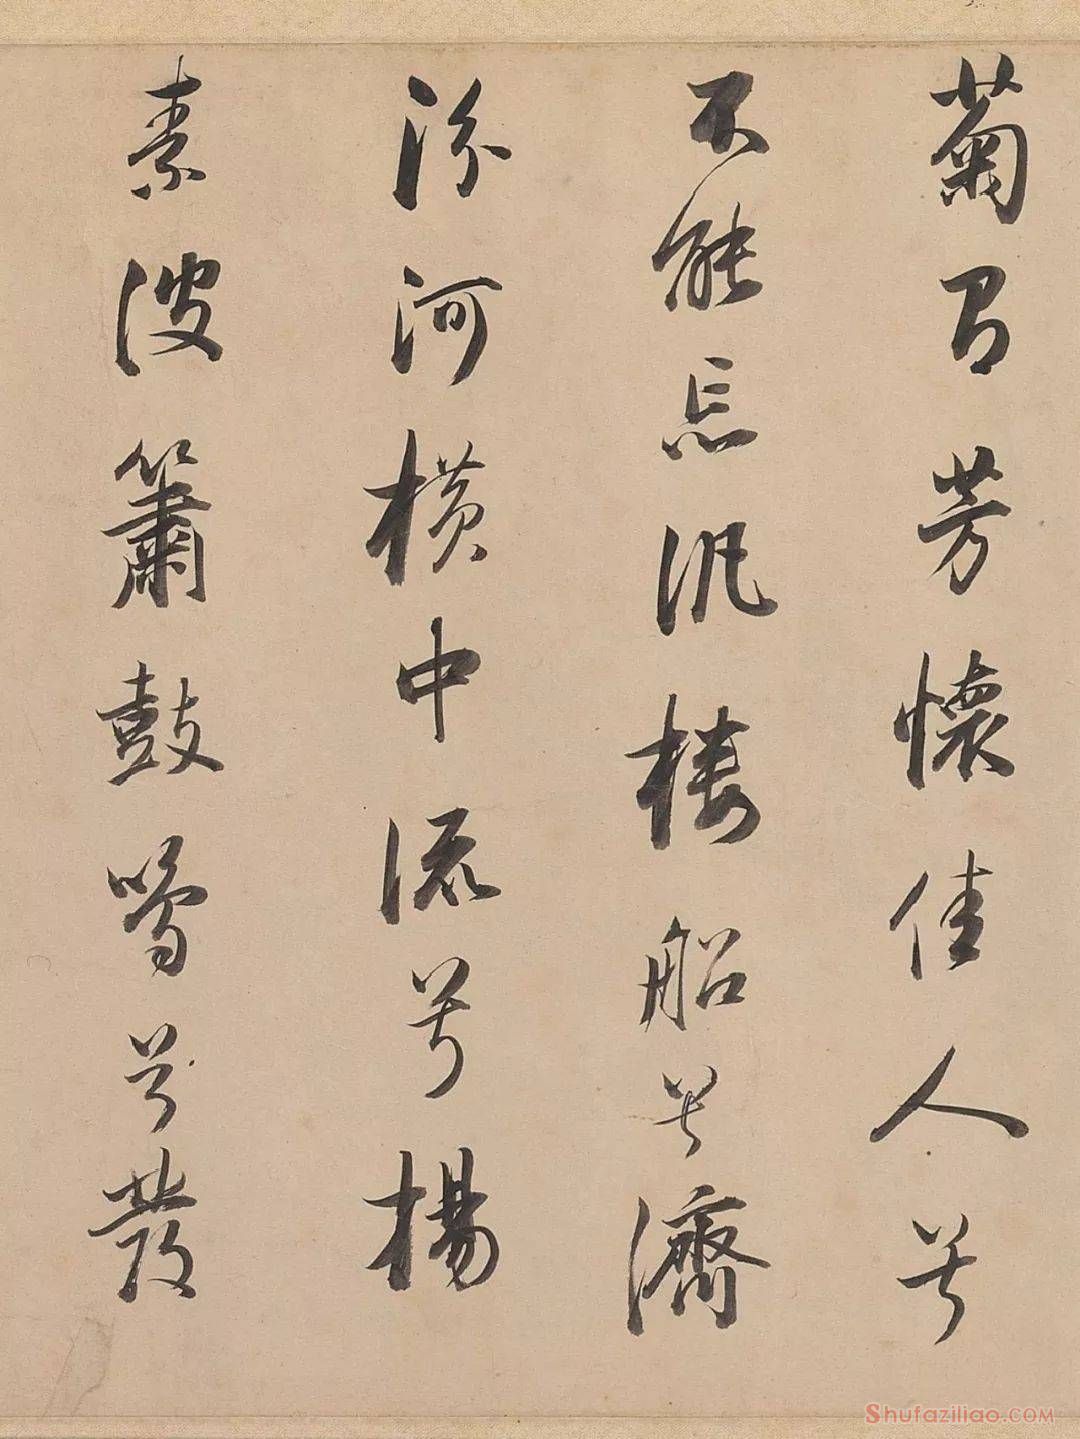 菊有芳懷佳人兮
不能忘汎樓船兮濟
汾河橫中流兮揚
素波簫鼓鳴兮發
Shufaziliao.COM